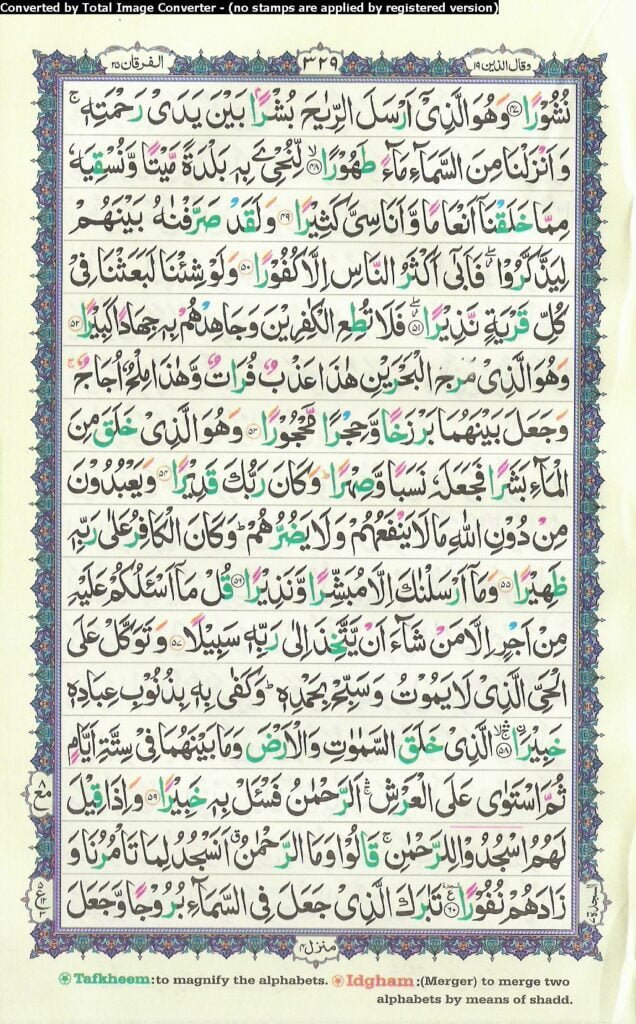 Converted by Total Image Converter - (no stamps are applied by registered version)
الفرقان ٢٥
٣٢٩
وقال الذين ١٩
نُشُوْرًا ﴿٤٧﴾ وَهُوَ الَّذِیْۤ اَرْسَلَ الرِّیٰحَ بُشْرًۢا بَیْنَ یَدَیْ رَحْمَتِهٖ ۚ
وَاَنْزَلْنَا مِنَ السَّمَآءِ مَآءً طَهُوْرًا ﴿٤٨﴾ۙ لِّنُحْیِۦَ بِهٖ بَلْدَةً مَّیْتًا وَّنُسْقِیَهٗ
مِمَّا خَلَقْنَاۤ اَنْعَامًا وَّاَنَاسِیَّ كَثِیْرًا ﴿٤٩﴾ وَلَقَدْ صَرَّفْنٰهُ بَیْنَهُمْ
لِیَذَّكَّرُوْا ۖ فَاَبٰۤی اَكْثَرُ النَّاسِ اِلَّا كُفُوْرًا ﴿٥٠﴾ وَلَوْ شِئْنَا لَبَعَثْنَا فِیْ
كُلِّ قَرْیَةٍ نَّذِیْرًا ﴿٥١﴾ۖ فَلَا تُطِعِ الْكٰفِرِیْنَ وَجَاهِدْهُمْ بِهٖ جِهَادًا كَبِیْرًا ﴿٥٢﴾
وَهُوَ الَّذِیْ مَرَجَ الْبَحْرَیْنِ هٰذَا عَذْبٌ فُرَاتٌ وَّهٰذَا مِلْحٌ اُجَاجٌ ۚ
وَجَعَلَ بَیْنَهُمَا بَرْزَخًا وَّحِجْرًا مَّحْجُوْرًا ﴿٥٣﴾ وَهُوَ الَّذِیْ خَلَقَ مِنَ
الْمَآءِ بَشَرًا فَجَعَلَهٗ نَسَبًا وَّصِهْرًا ؕ وَكَانَ رَبُّكَ قَدِیْرًا ﴿٥٤﴾ وَیَعْبُدُوْنَ
مِنْ دُوْنِ اللّٰهِ مَا لَا یَنْفَعُهُمْ وَلَا یَضُرُّهُمْ ؕ وَكَانَ الْكَافِرُ عَلٰی رَبِّهٖ
ظَهِیْرًا ﴿٥٥﴾ وَمَاۤ اَرْسَلْنٰكَ اِلَّا مُبَشِّرًا وَّنَذِیْرًا ﴿٥٦﴾ قُلْ مَاۤ اَسْـَٔلُكُمْ عَلَیْهِ
مِنْ اَجْرٍ اِلَّا مَنْ شَآءَ اَنْ یَّتَّخِذَ اِلٰی رَبِّهٖ سَبِیْلًا ﴿٥٧﴾ وَتَوَكَّلْ عَلَی
الْحَیِّ الَّذِیْ لَا یَمُوْتُ وَسَبِّحْ بِحَمْدِهٖ ؕ وَكَفٰی بِهٖ بِذُنُوْبِ عِبَادِهٖ
خَبِیْرًا ﴿٥٨﴾ۚۛ الَّذِیْ خَلَقَ السَّمٰوٰتِ وَالْاَرْضَ وَمَا بَیْنَهُمَا فِیْ سِتَّةِ اَیَّامٍ
ثُمَّ اسْتَوٰی عَلَی الْعَرْشِ ۚۛ اَلرَّحْمٰنُ فَسْـَٔلْ بِهٖ خَبِیْرًا ﴿٥٩﴾ وَاِذَا قِیْلَ
لَهُمُ اسْجُدُوْا لِلرَّحْمٰنِ ۚ قَالُوْا وَمَا الرَّحْمٰنُ ۗ اَنَسْجُدُ لِمَا تَاْمُرُنَا وَ
زَادَهُمْ نُفُوْرًا ﴿٦٠﴾ تَبٰرَكَ الَّذِیْ جَعَلَ فِی السَّمَآءِ بُرُوْجًا وَّجَعَلَ
السجدة ٧
منزل ٤
Tafkheem:to magnify the alphabets. Idgham:(Merger) to merge two
alphabets by means of shadd.